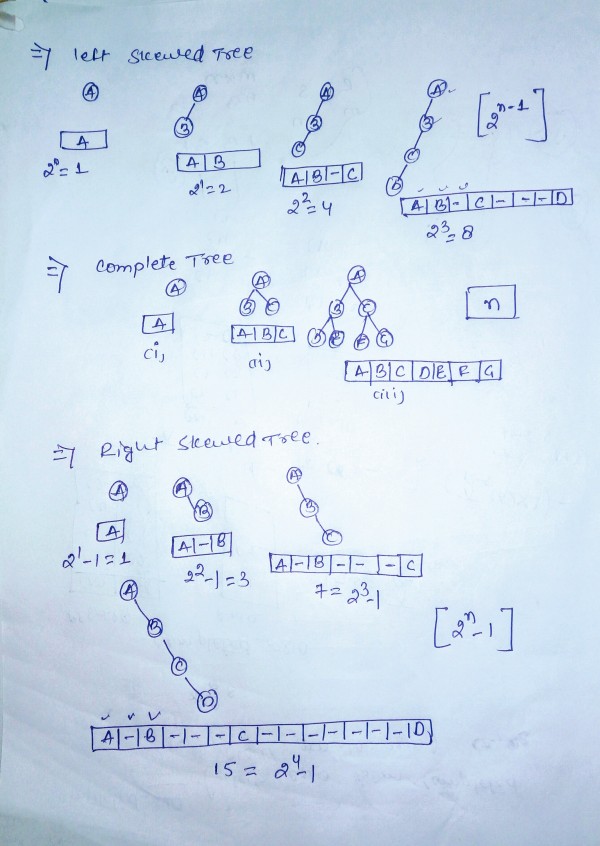 ⇒ left Skewed Tree
A A A A
B B B [2^n-1]
C C
D
A
A|B
A|B|-|C
A|B|-|C|-|-|-|D
2^0=1
2^1=2
2^2=4
2^3=8
⇒ Complete Tree
A A A
B C B C n
D E F G
A
A|B|C
A|B|C|D|E|F|G
(i)
(ii)
(iii)
⇒ Right Skewed Tree.
A A A
B B
C
A
A|-|B
A|-|B|-|-|-|C
2^1-1=1
2^2-1=3
7=2^3-1
A
B [2^n-1]
C
D
A|-|B|-|-|-|C|-|-|-|-|-|-|-|D
15=2^4-1